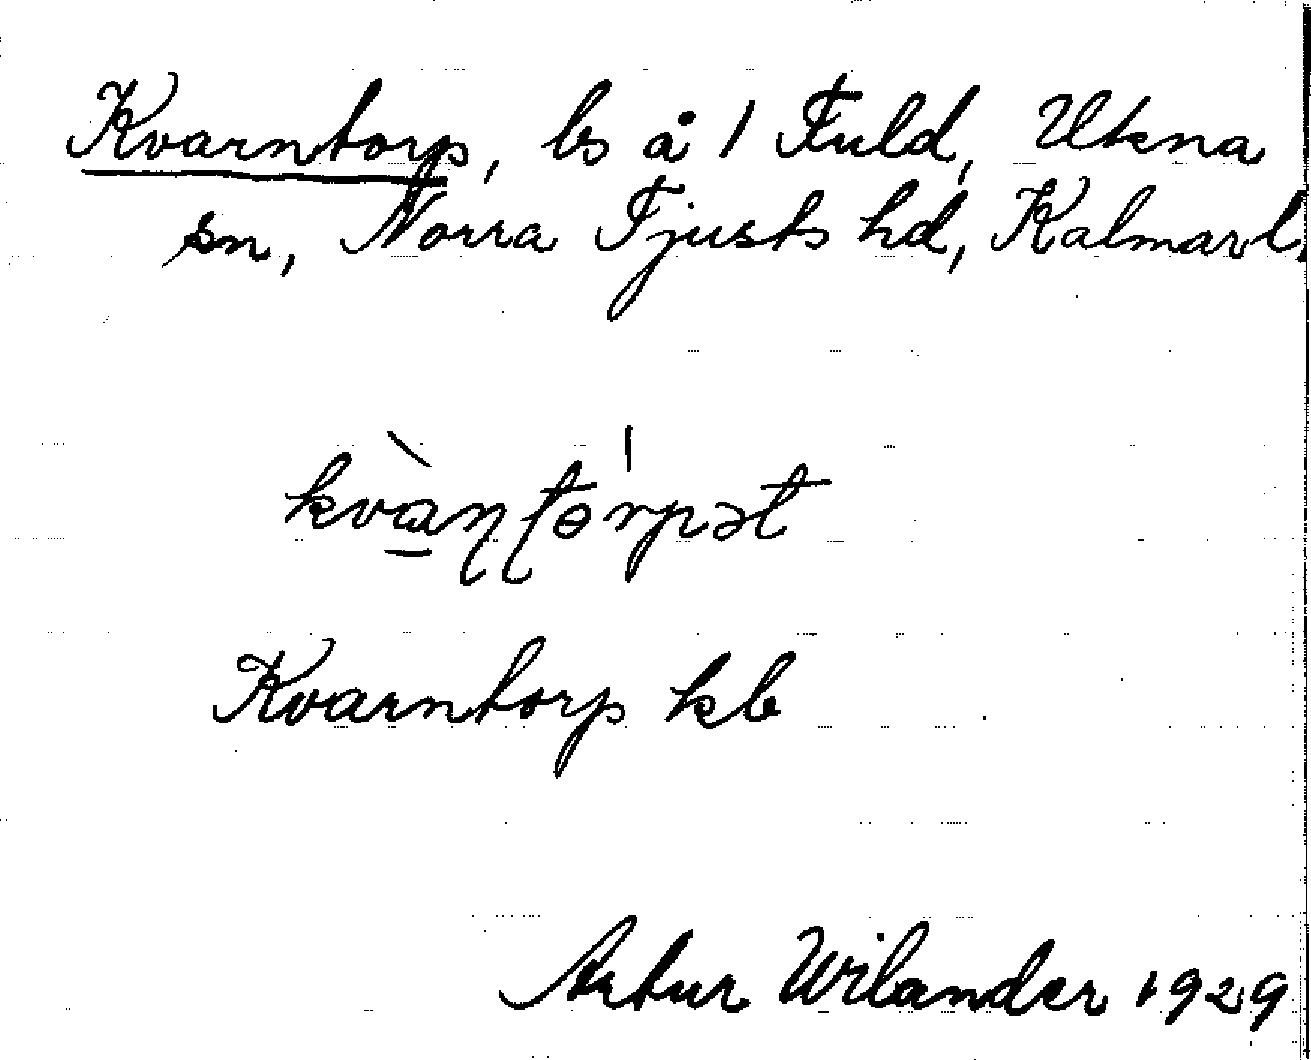 Kvarntorp, ls å 1 Fuld, Ukna
sn, Norra Tjusts hd, Kalmar l.
kvàɳʈɵ́rpət
Kvarntorp kb
Artur Wilander 1929